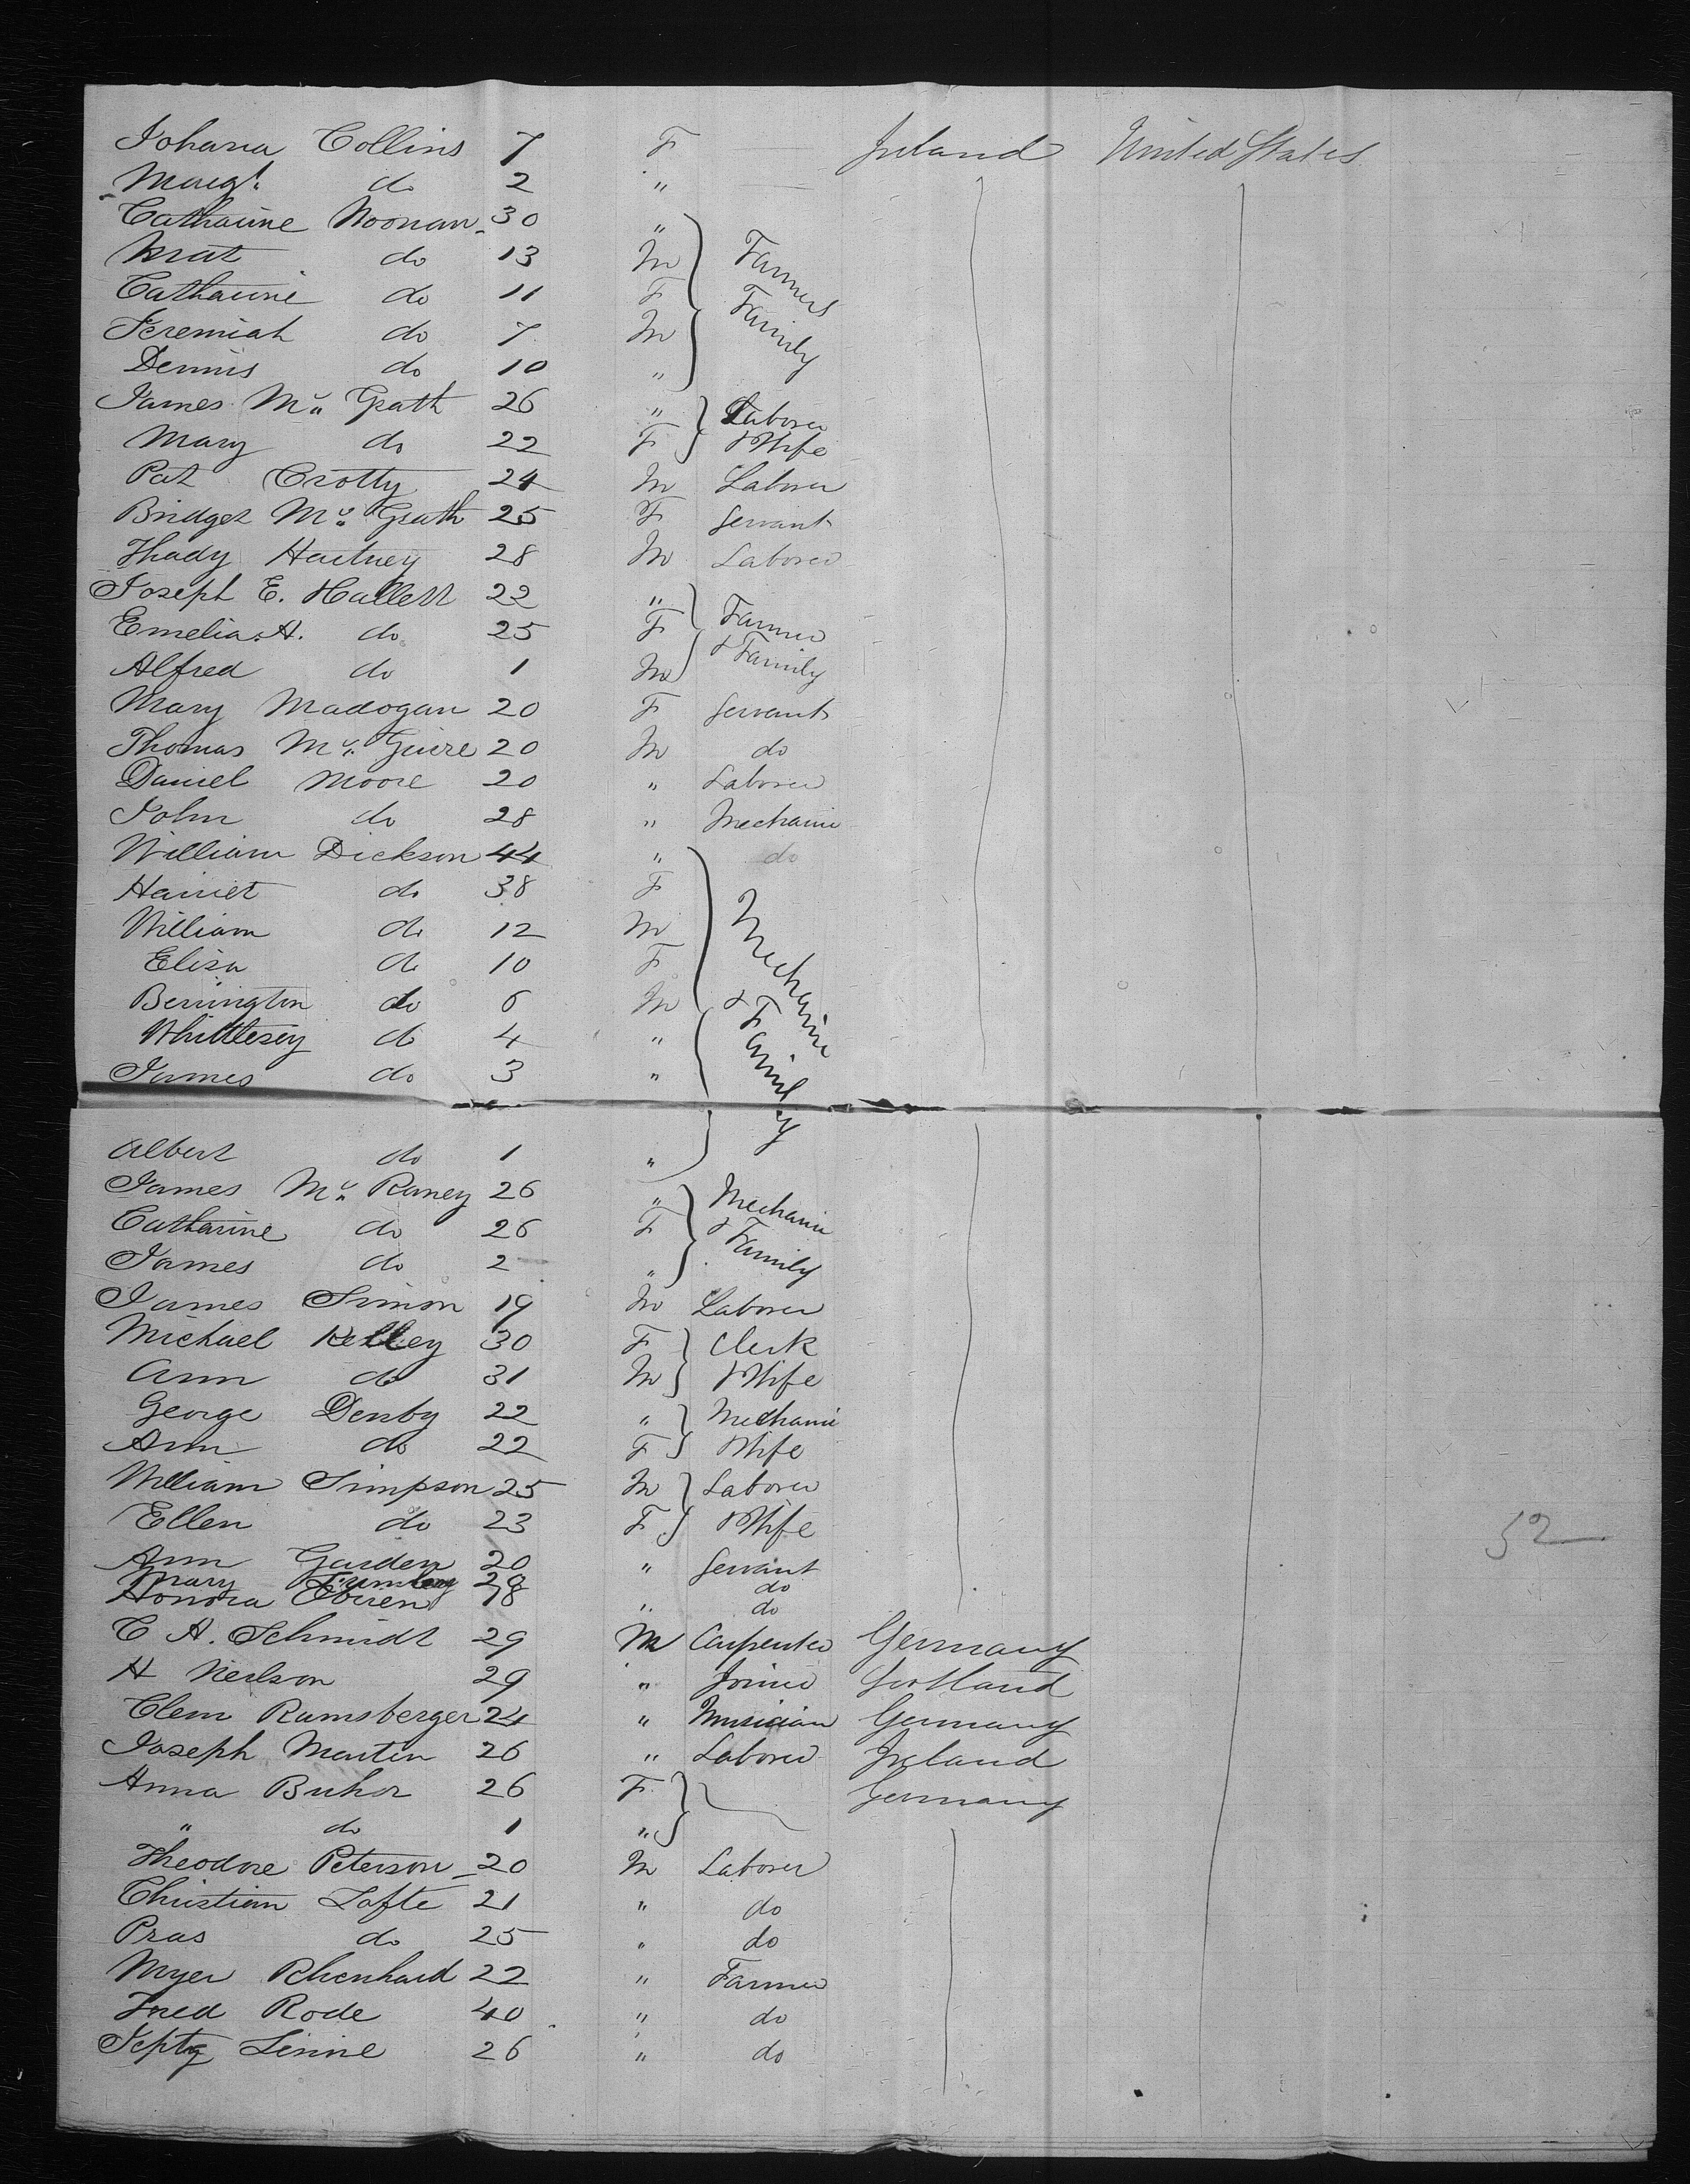 Johana Collins 7 F Ireland United States
Margt. do 2 "
Catharine Noonan 30 "
Mat do 13 M Farmers
Catharine do 11 F Family
Jeremiah do 7 M
Dennis do 10 "
James Mc Grath 26 " Laborer
Mary do 22 F & Wife
Pat Crotty 24 M Laborer
Bridget Mc Grath 25 F Servant
Thady Hartney 28 M Laborer
Joseph E. Hallett 22 "
Emelia A. do 25 F Farmer
Alfred do 1 M & Family
Mary Madogan 20 F Servant
Thomas Mc Guire 20 M do
Daniel Moore 20 " Laborer
John do 28 " Mechanic
William Dickson 44 " do
Harriet do 38 F
William do 12 M Mechanic
Eliza do 10 F
Bennington do 6 M & Family
Whittlesey do 4 "
James do 3 "
Albert do 1 "
James Mc Raney 26 " Mechanic
Catharine do 26 F & Family
James do 2 "
James Simon 19 M Laborer
Michael Kelley 30 F Clerk
Ann do 31 M & Wife
George Denby 22 " Mechanic
Ann do 22 F & Wife
William Simpson 25 M Laborer
Ellen do 23 F & Wife
52
Ann Garden 20 " Servant
Mary do
Honora Obrien 18 " do
C A. Schmidt 29 M Carpenter Germany
H Neilson 29 " Joiner Scotland
Clem Ramsberger 24 " Musician Germany
Joseph Martin 26 " Laborer Ireland
Anna Buhor 26 F Germany
" do 1 "
Theodore Peterson 20 M Laborer
Christian Lafte 21 " do
Pras do 25 " do
Myer Rhenhard 22 " Farmer
Fred Rode 40 " do
26 " do